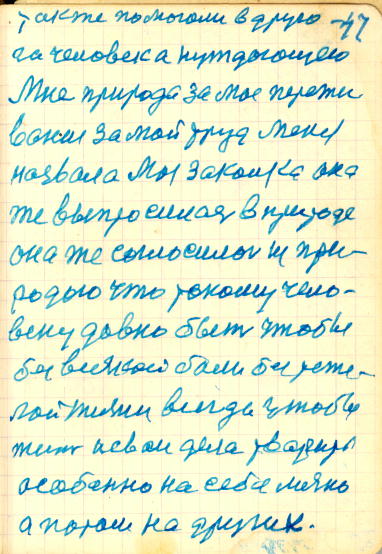 также помогали в друго 47
га человека нуждающею
Мне природа за мое пережи
вание за мой труд меня
назвала Моя закалка она
же выпросилась в природе
она же согласилась и при-
родою что такому чело-
веку давно быть чтобы
без всякой боли без тяже-
лой жизни всегда чтобы
жить и свои дела творить
особенно на себе мяно
а потом на других.